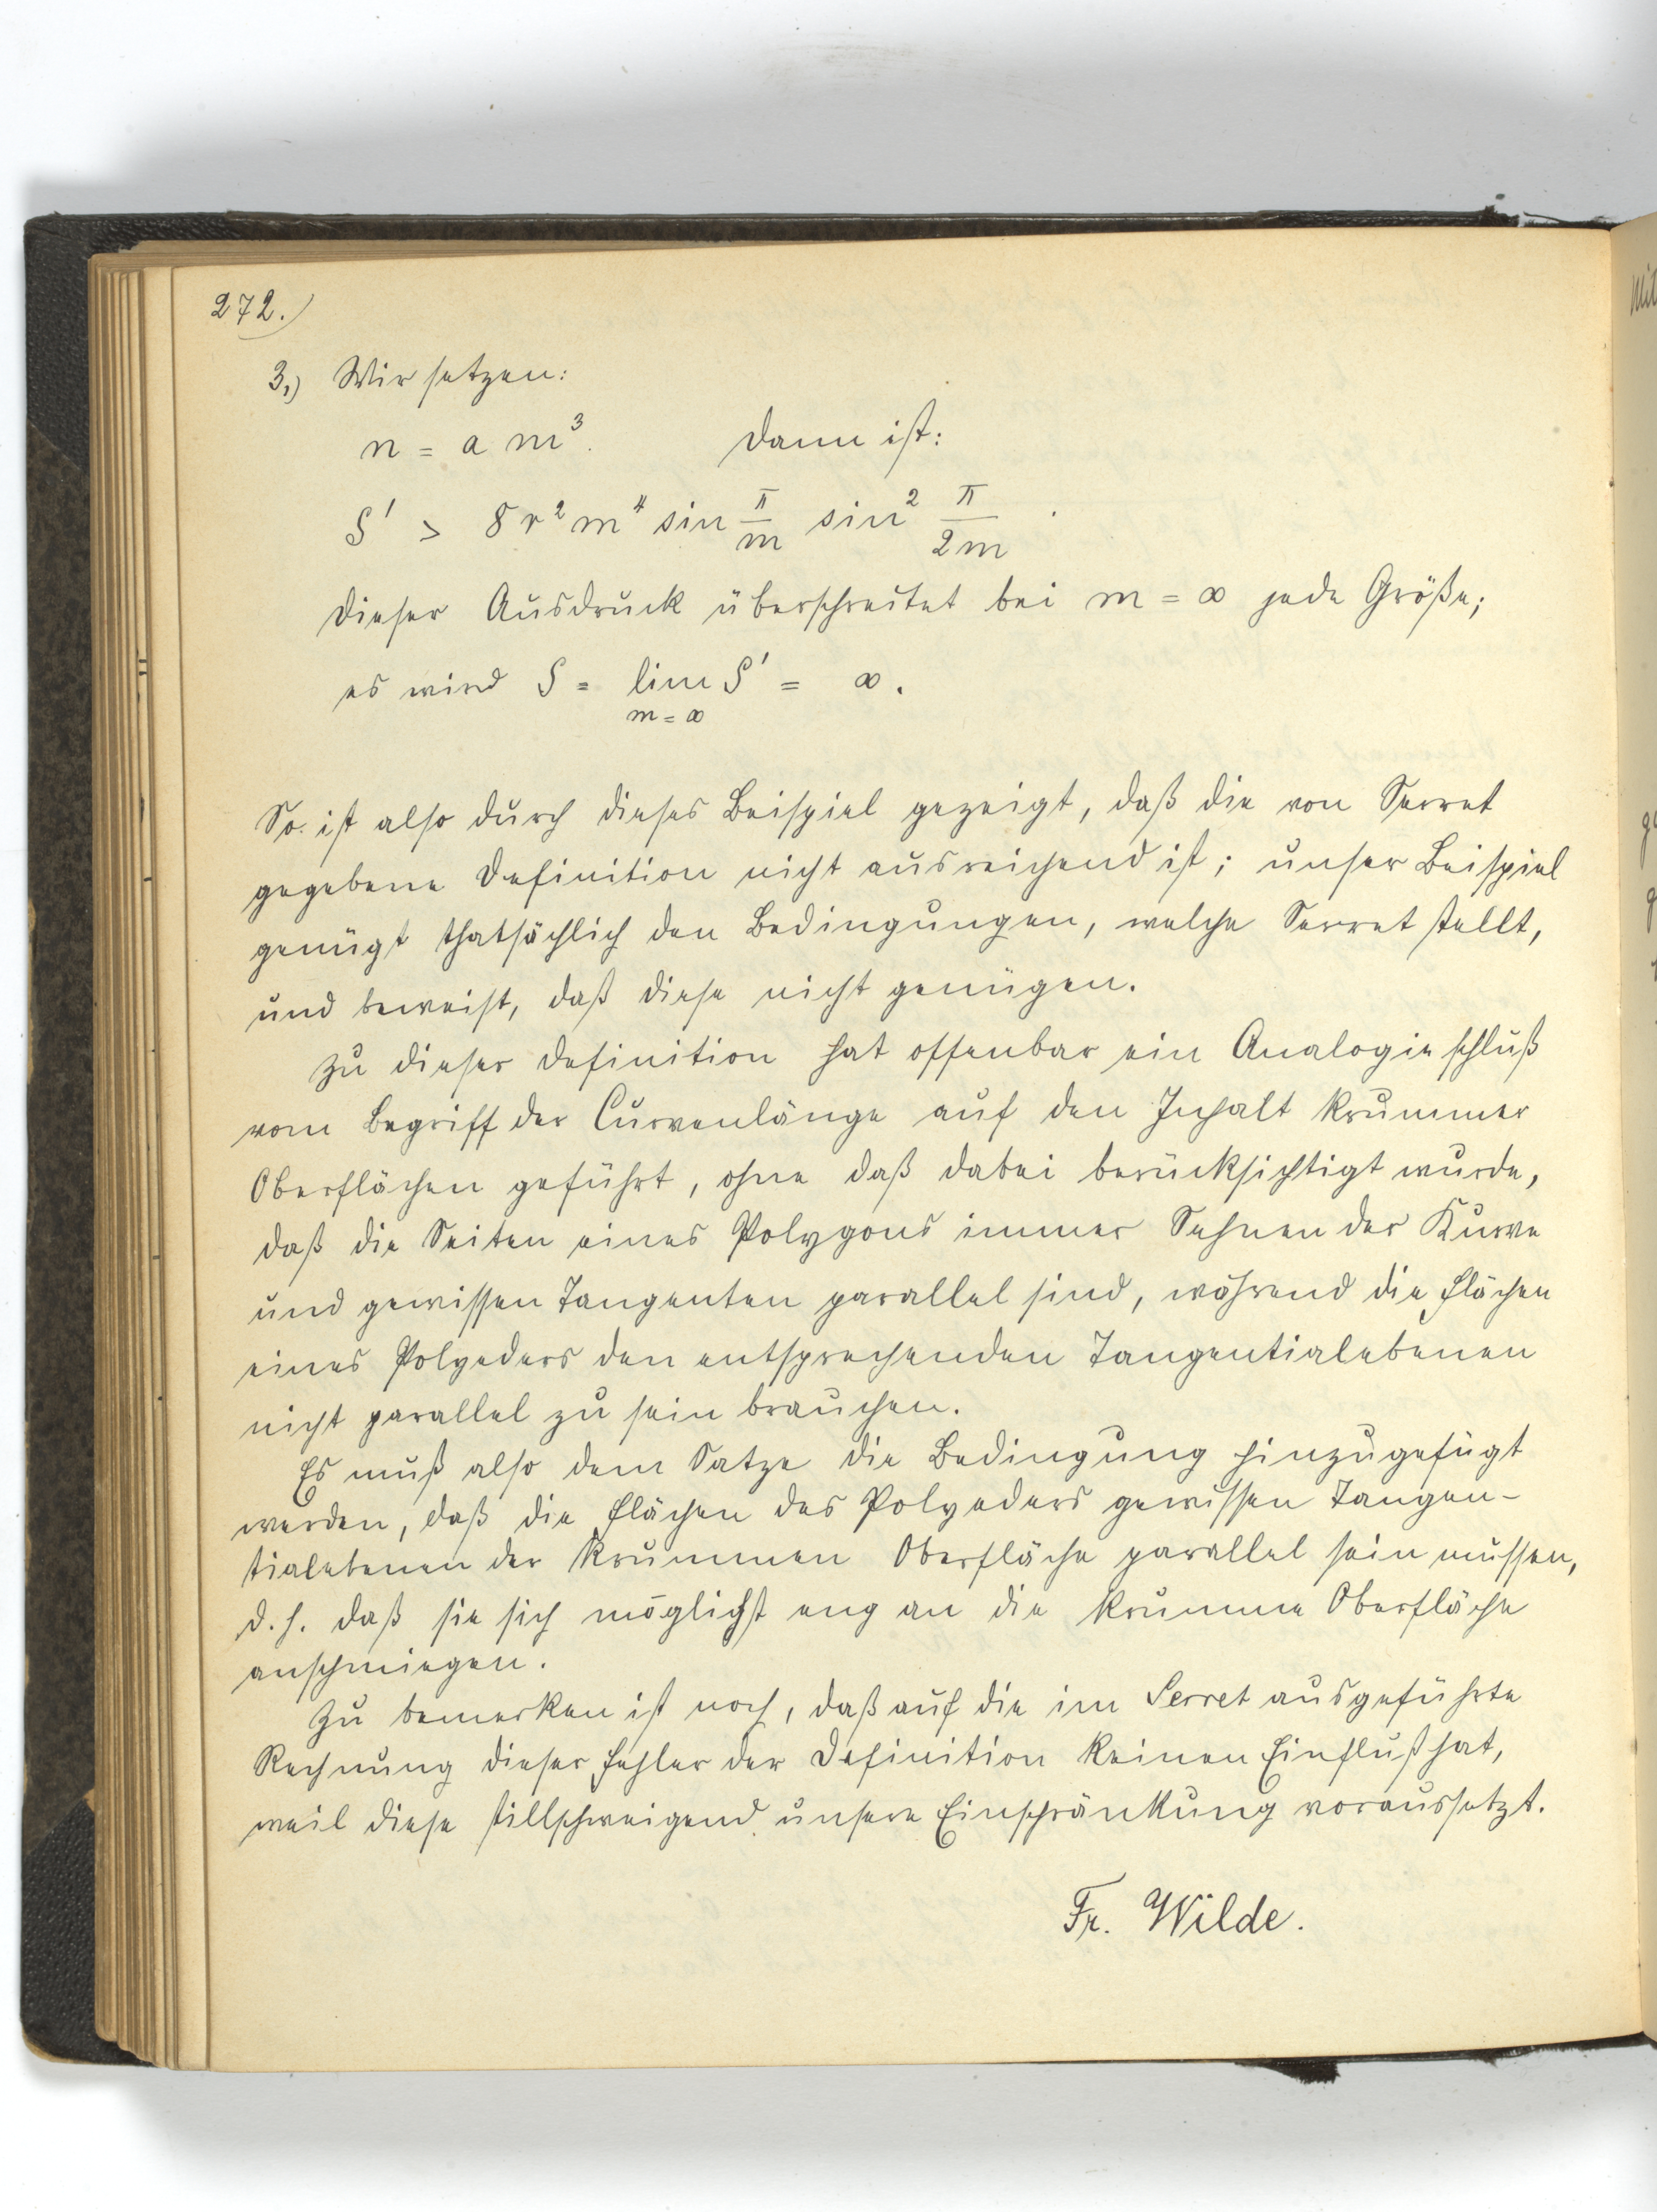 272.)
3.) Wir setzen:
n = a m³. Dann ist:
S' > 8 r² m⁴ sin π/m sin² π/2m .
Dieser Ausdruck überschreitet bei m = ∞ jede Größe;
es wird S = lim S' = ∞.
m = ∞
So ist also durch dieses Beispiel gezeigt, daß die von Serret
gegebene Definition nicht ausreichend ist; unser Beispiel
genügt thatsächlich den Bedingungen, welche Serret stellt,
und beweist, daß diese nicht genügen.
Zu dieser Definition hat offenbar ein Analogieschluß
vom Begriff der Curvenlänge auf den Inhalt krummer
Oberflächen geführt, ohne daß dabei berücksichtigt wurde,
daß die Seiten eines Polygons immer Sehnen der Kurve
und gewissen Tangenten parallel sind, während die Flächen
eines Polyeders den entsprechenden Tangentialebenen
nicht parallel zu sein brauchen.
Es muß also dem Satze die Bedingung hinzugefügt
werden, daß die Flächen des Polyeders gewissen Tangen-
tialebenen der krummen Oberfläche parallel sein müssen,
d.h. daß sie sich möglichst eng an die krumme Oberfläche
anschmiegen.
Zu bemerken ist noch, daß auf die im Serret ausgeführte
Rechnung dieser Fehler der Definition keinen Einfluß hat,
weil diese stillschweigend unsere Einschränkung voraussetzt.
Fr. Wilde.